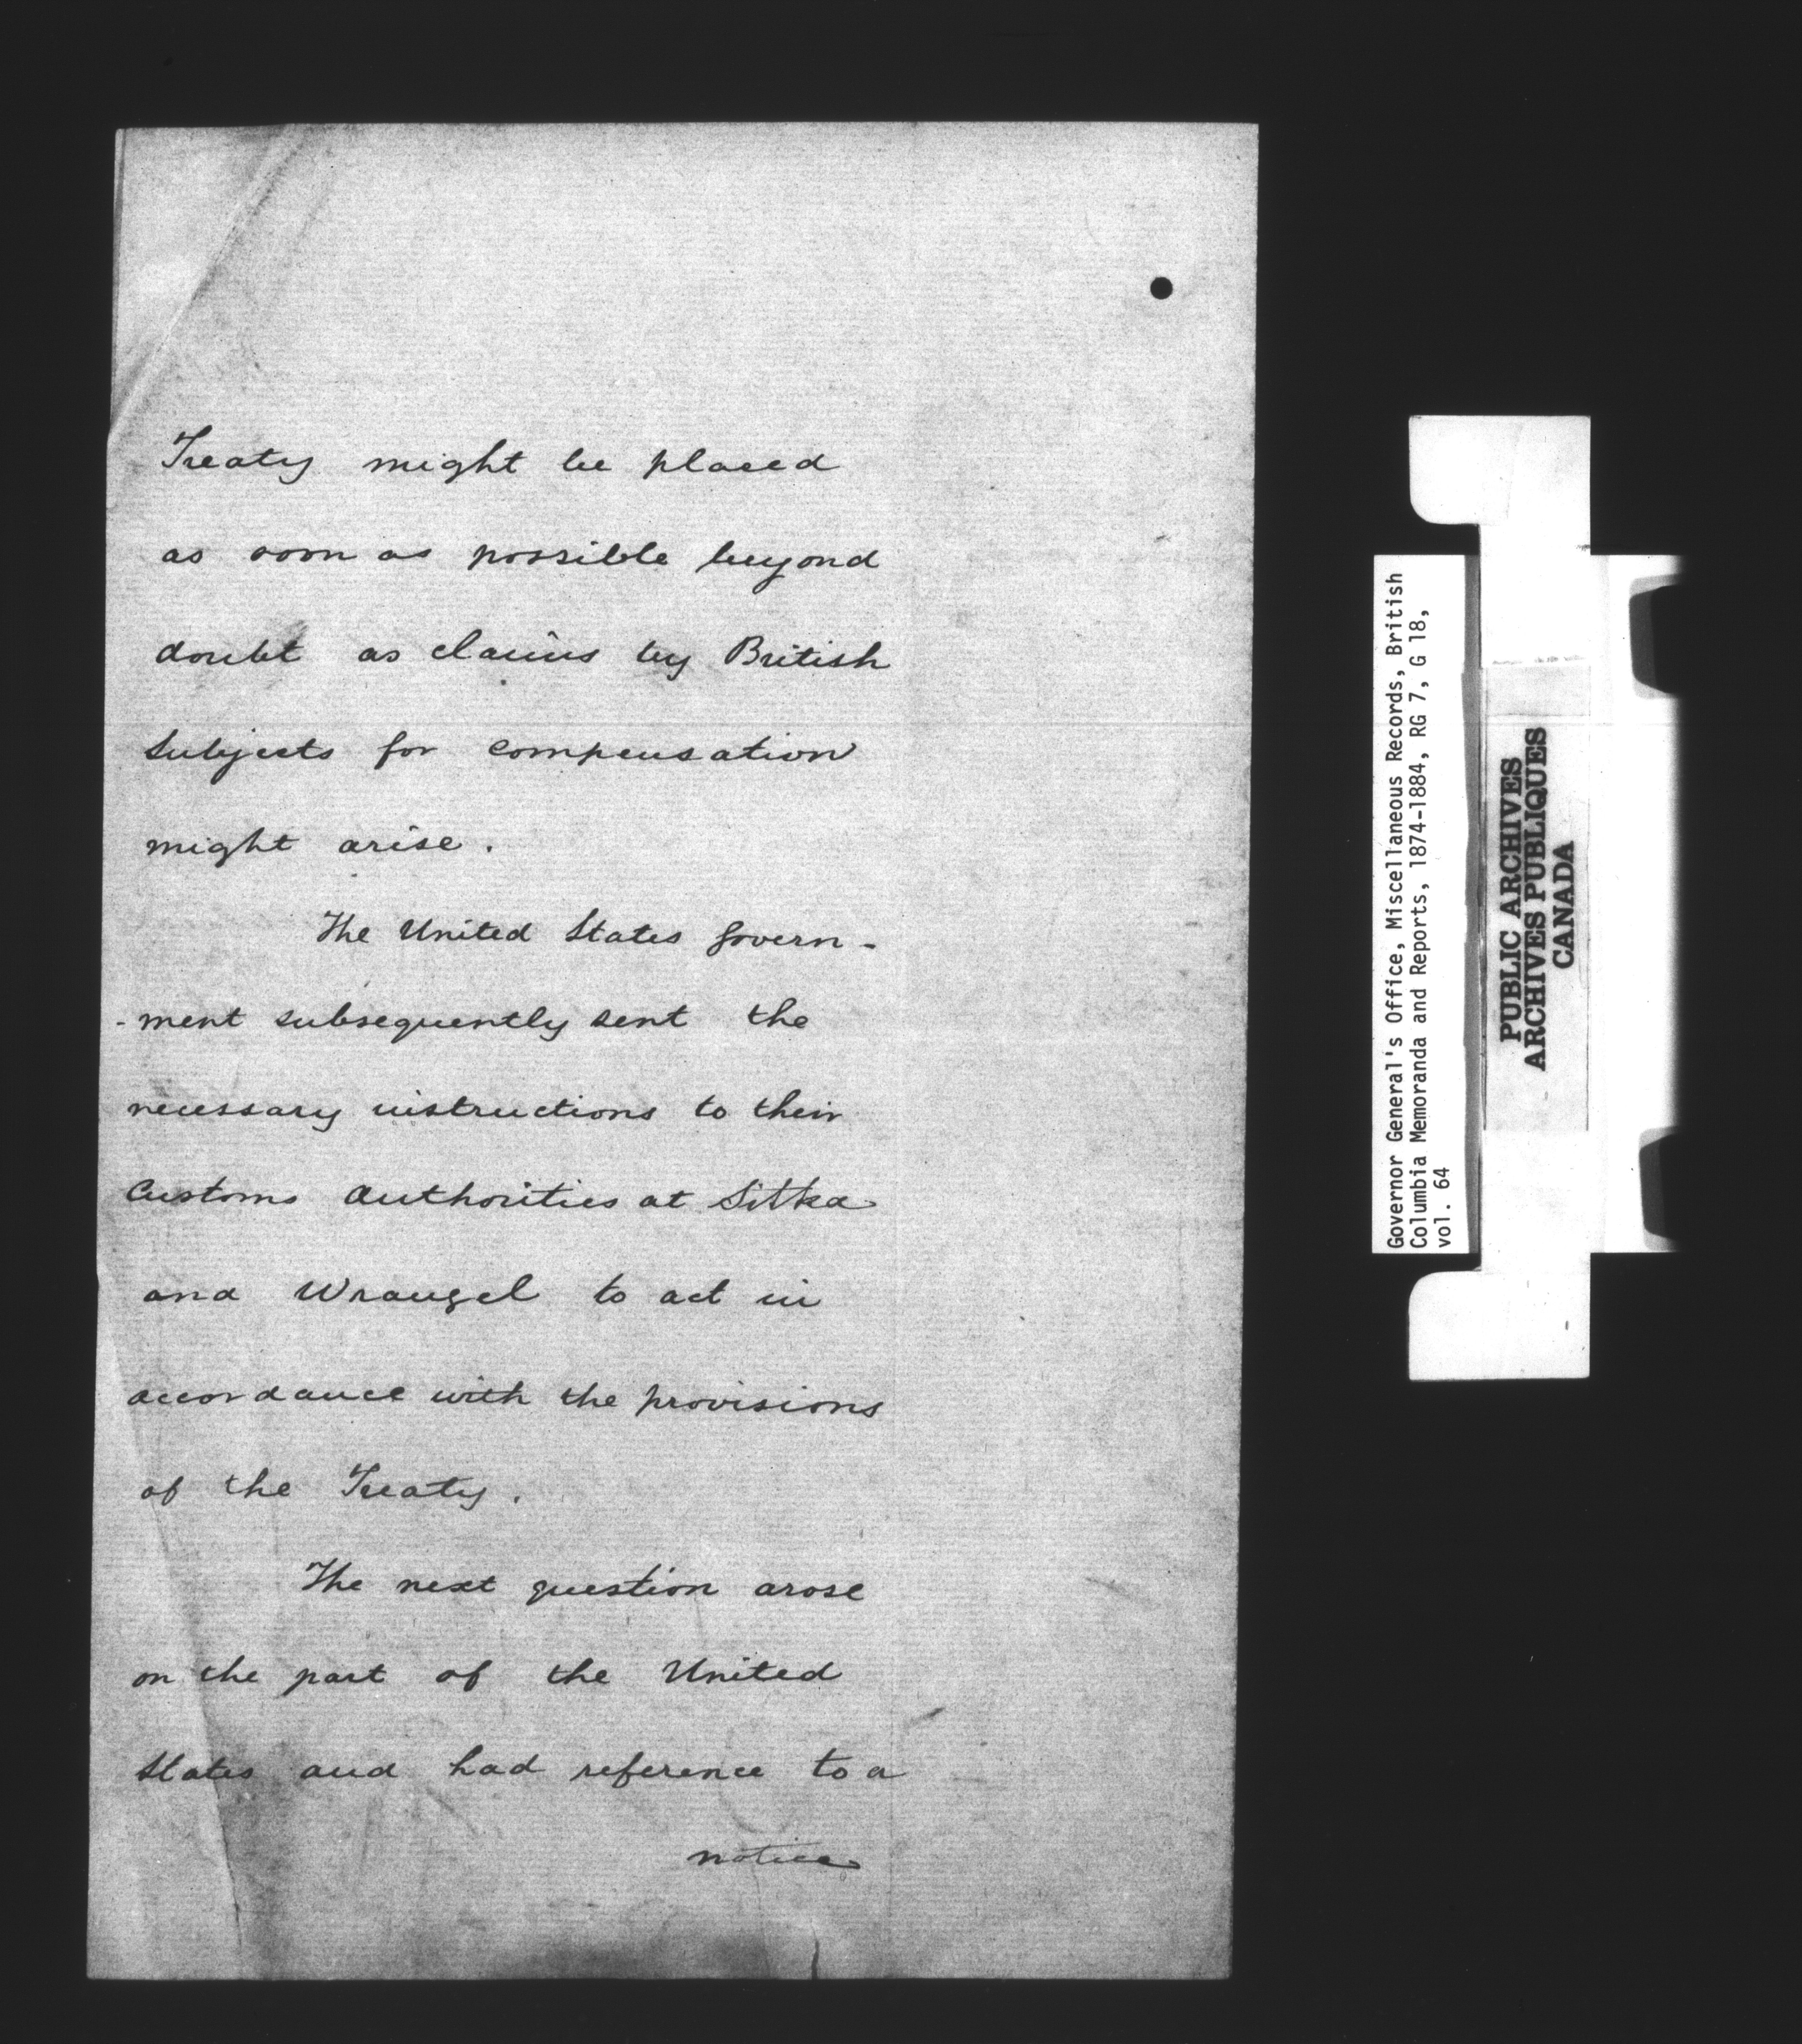 Treaty might be placed
as soon as possible beyond
doubt as claims by British
subjects for compensation
might arise.
The United States Govern-
-ment subsequently sent the
necessary instructions to their
Customs Authorities at Sitka
and Wrangel to act in
accordance with the provisions
of the Treaty.
The next question arose
on the part of the United
States and had reference to a
notice
Governor General's Office, Miscellaneous Records, British
Columbia Memoranda and Reports, 1874-1884, RG 7, G 18,
vol. 64
PUBLIC ARCHIVES
ARCHIVES PUBLIQUES
CANADA